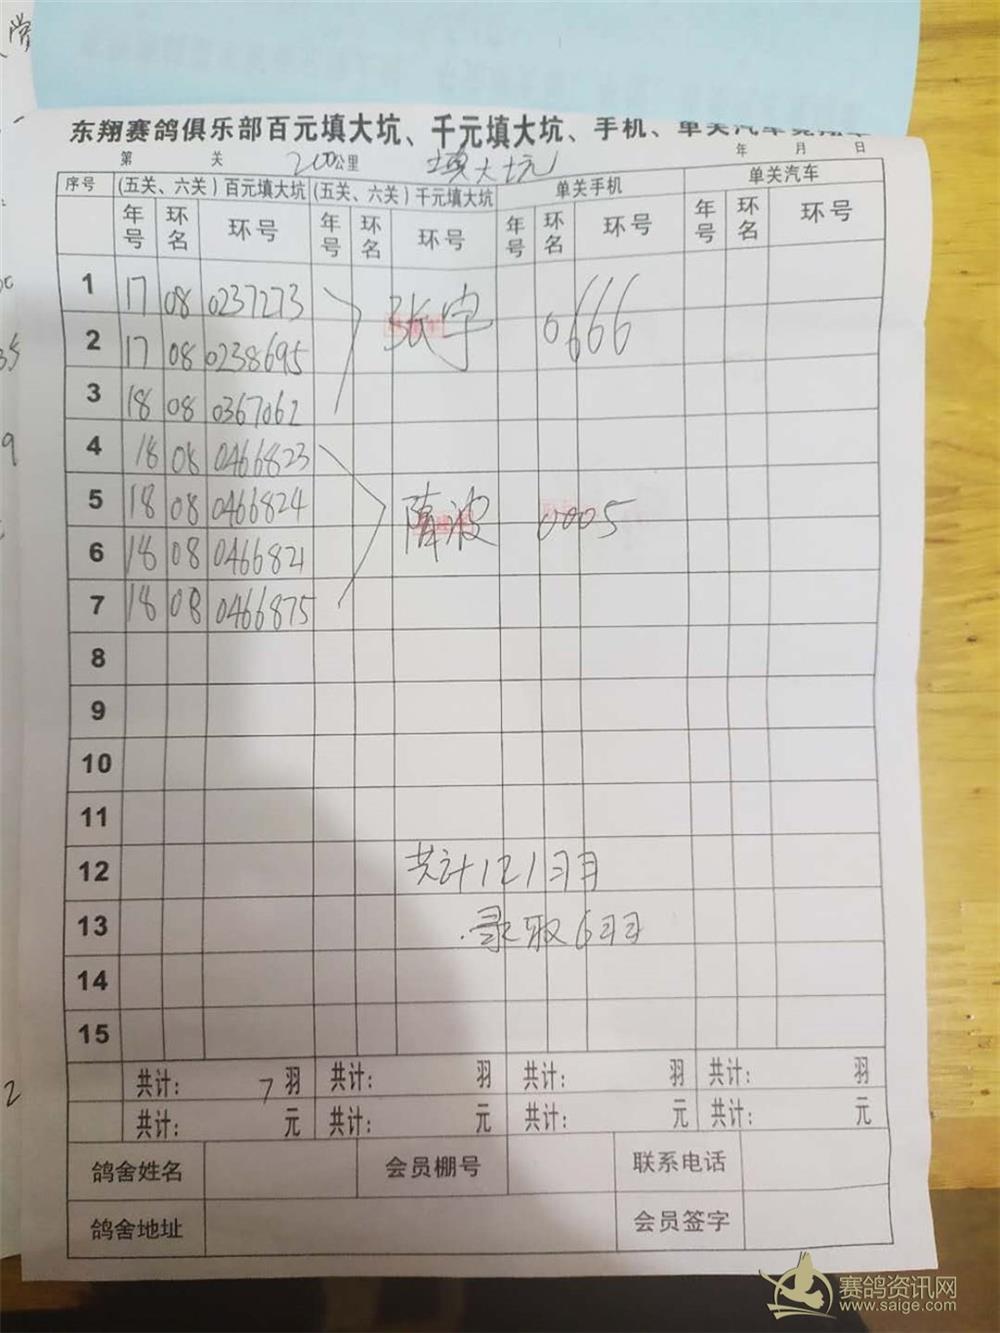 东翔赛鸽俱乐部百元填大坑、千元填大坑、手机、单关汽车费用单
第 关 200公里 填大坑 年 月 日
序号 (五关、六关)百元填大坑 (五关、六关)千元填大坑 单关手机 单关汽车
年号 环名 环号 年号 环名 环号 年号 环名 环号 年号 环名 环号
1 17 08 0237273
张宇 0666
2 17 08 0238695
3 18 08 0367062
4 18 08 0466823
5 18 08 0466824
隋波 0005
6 18 08 0466821
7 18 08 0466875
8
9
10
11
12 共计121羽
13 录取6羽
14
15
共计: 7 羽 共计: 羽 共计: 羽 共计: 羽
共计: 元 共计: 元 共计: 元 共计: 元
鸽舍姓名 会员棚号 联系电话
鸽舍地址 会员签字
赛鸽资讯网
www.saige.com